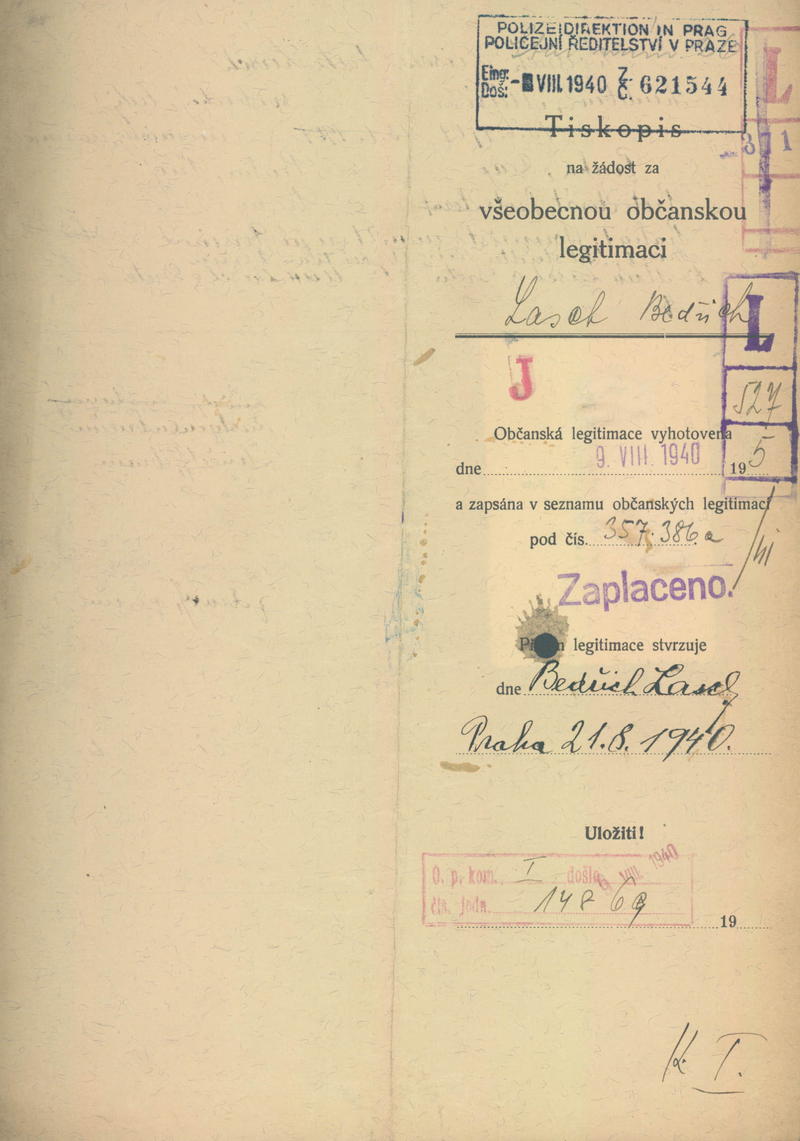 POLIZEIDIREKTION IN PRAG
POLICEJNÍ ŘEDITELSTVÍ V PRAZE
Eing.: Doš.: VIII. 1940 Z. Č. 621544
Tiskopis
L
3 1
na žádost za
všeobecnou občanskou
legitimaci
Lasch Bedřich
L
J
527
Občanská legitimace vyhotovena
dne 9. VIII. 1940 19
5
a zapsána v seznamu občanských legitimací
pod čís. 357.386 a
Zaplaceno.
legitimace stvrzuje
dne Bedřich Lasch
Praha 21.8.1940.
Uložiti!
O. p. kom. I došlo VIII. 1940
čís. jedn. 14869
19
K I.